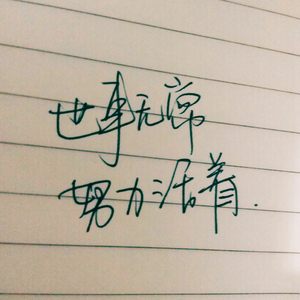 世事无常
努力活着.